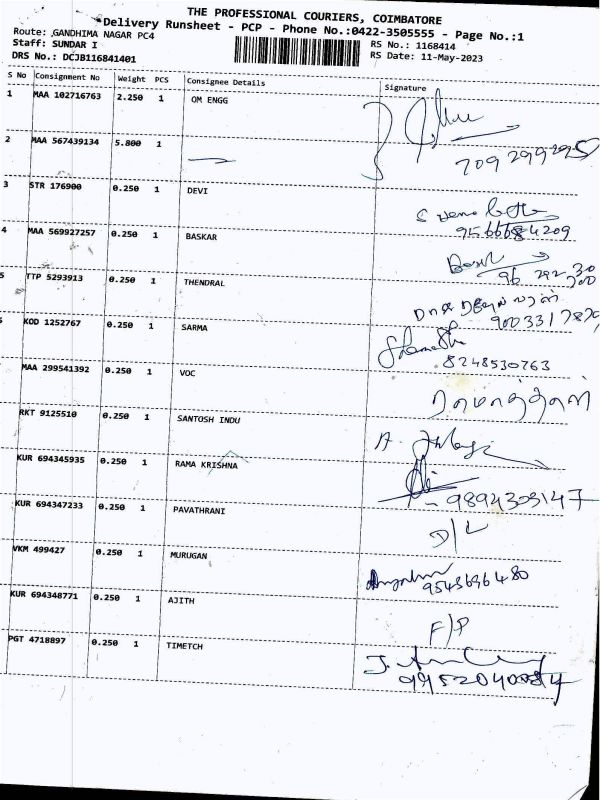 THE PROFESSIONAL COURIERS, COIMBATORE
Delivery Runsheet - PCP - Phone No.:0422-3505555 - Page No.:1
Route: GANDHIMA NAGAR PC4
RS No.: 1168414
Staff: SUNDAR I
RS Date: 11-May-2023
DRS No.: DCJB116841401
S No Consignment No Weight PCS Consignee Details Signature
1 MAA 102716763 2.250 1 OM ENGG
2 MAA 567439134 5.800 1
709 299 295
3 STR 176900 0.250 1 DEVI
9566684209
4 MAA 569927257 0.250 1 BASKAR
5 TTP 5293913 0.250 1 THENDRAL
KOD 1252767 0.250 1 SARMA
8248530763
MAA 299541392 0.250 1 VOC
RKT 9125510 0.250 1 SANTOSH INDU
KUR 694345935 0.250 1 RAMA KRISHNA
9894303147
KUR 694347233 0.250 1 PAVATHRANI
D/L
VKM 499427 0.250 1 MURUGAN
9543696480
KUR 694348771 0.250 1 AJITH
F/P
PGT 4718897 0.250 1 TIMETCH